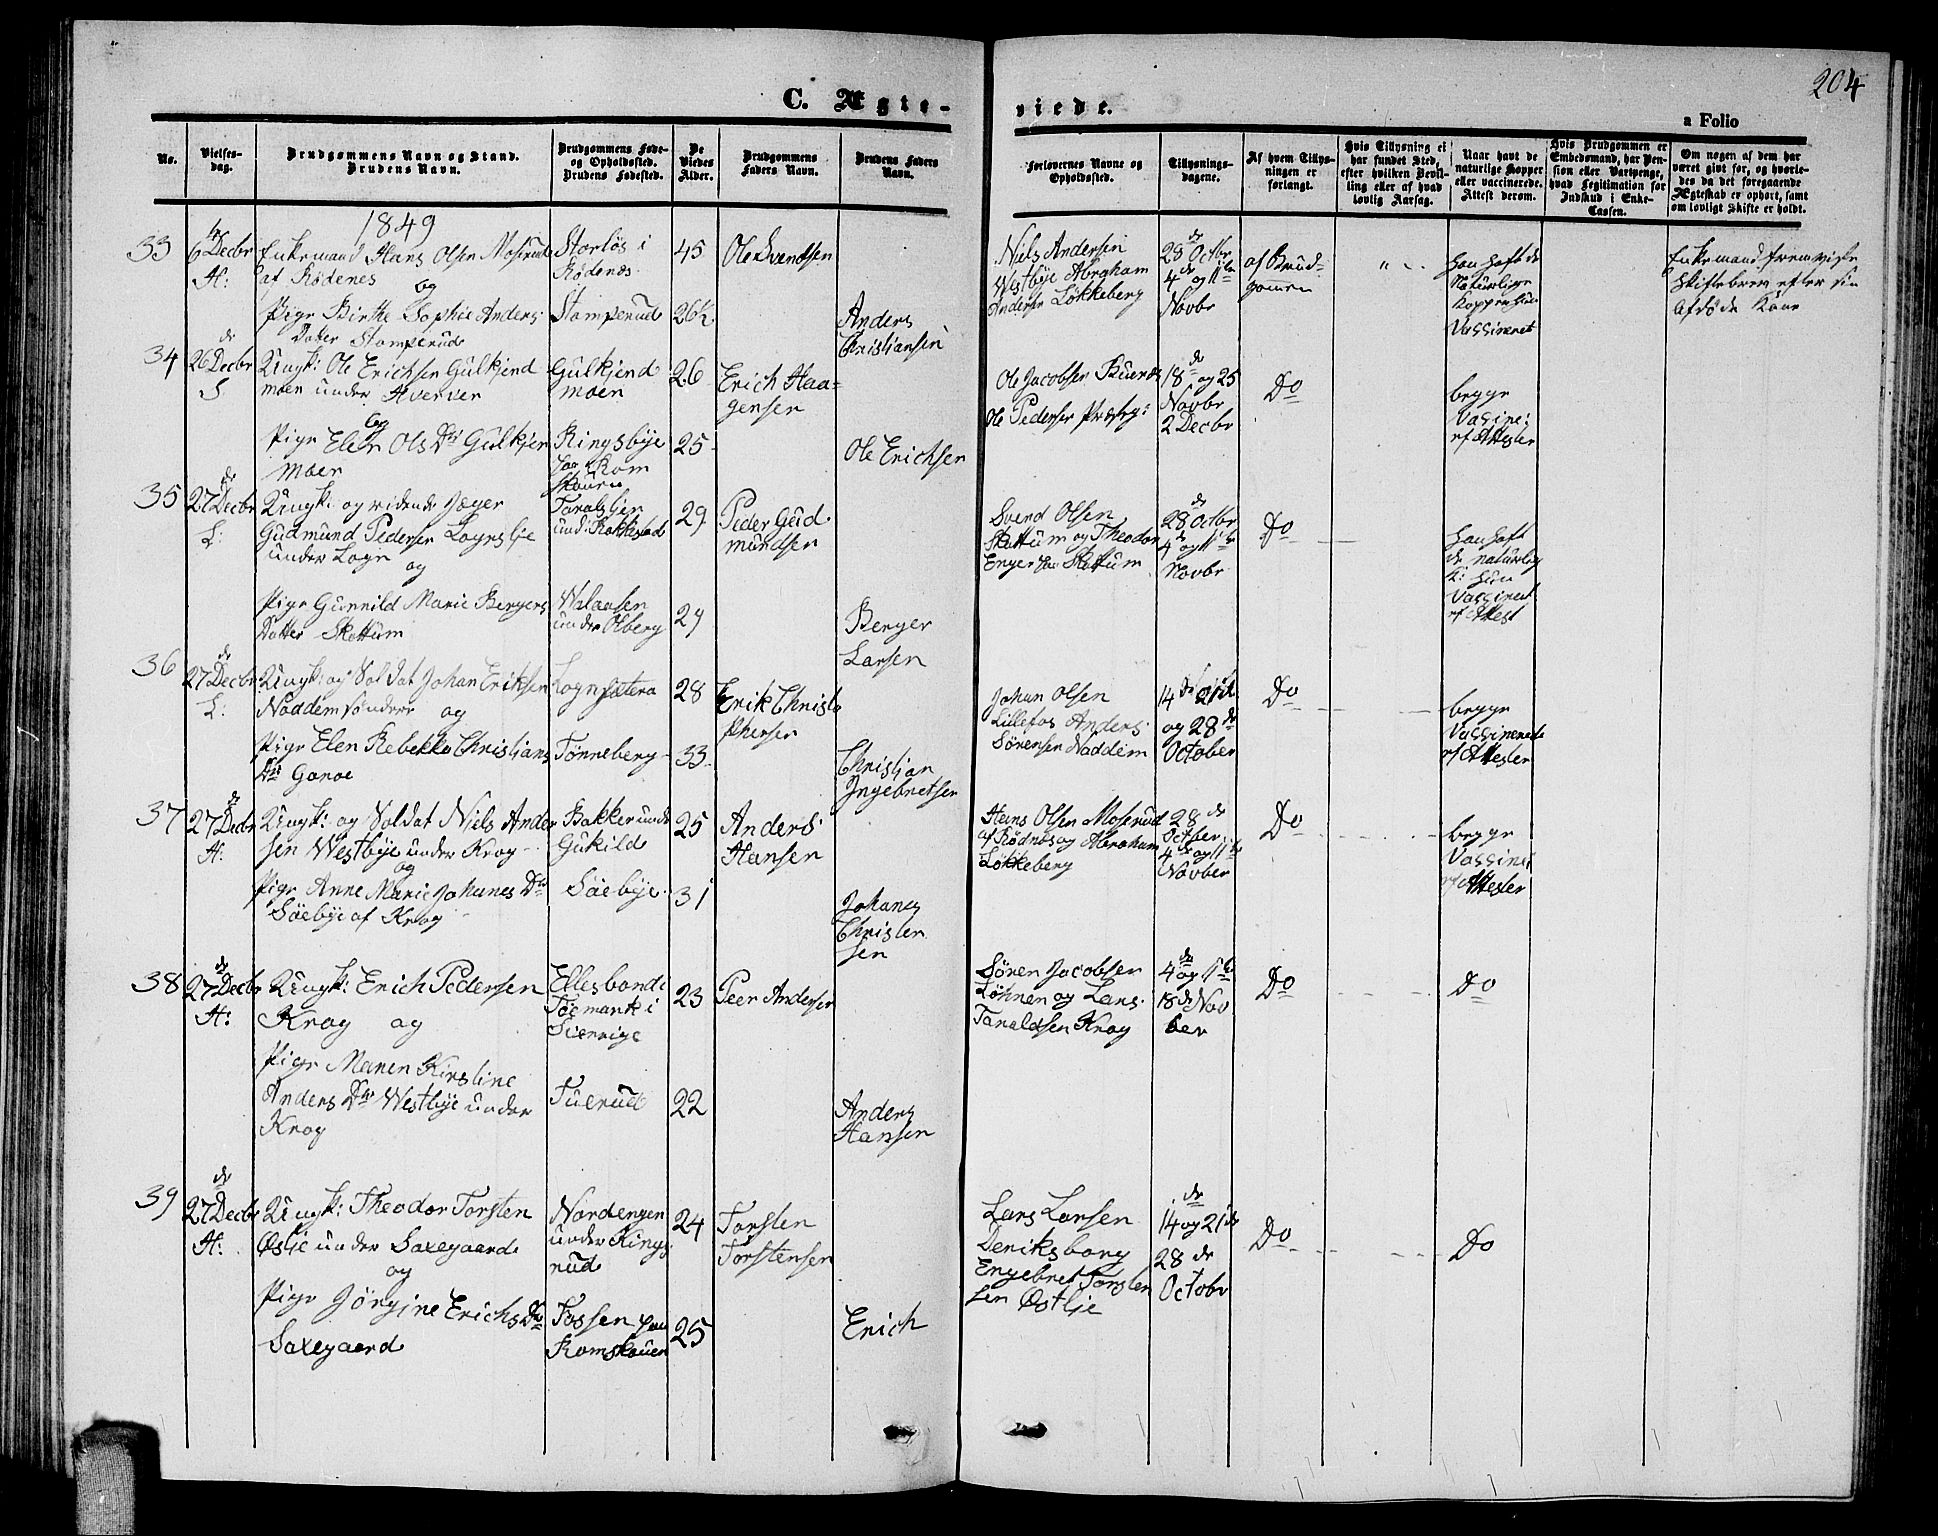 204
C. Ægte-
viede.
a Folio
No.
Vielses-
dag.
Brudgommens Navn og Stand.
Brudens Navn.
Brudgommens Føde-
og Opholdssted.
Brudens Fødested.
De
Viedes
Alder.
Brudgommens
Faders Navn.
Brudens Faders
Navn.
Forlovernes Navne og
Opholdssted.
Tillysnings-
dagene.
Af hvem Tillys-
ningen er
forlangt.
Hvis Tillysning ei
har fundet Sted,
efter hvilken Bevil-
ling eller af hvad
lovlig Aarsag.
Naar havt de
naturlige Kopper
eller vaccinerede.
Attest derom.
Hvis Brudgommen er
Embedsmand, har Pen-
sion eller Vartpenge,
hvad Legitimation for
Indskud i Enke-
Cassen.
Om nogen af dem har
været gift før, og hvorle-
des da det foregaaende
Ægteskab er ophørt, samt
om lovligt Skifte er holdt.
1849
33
6 Decbr
H:
Enkemand Hans Olsen Moserud
af Rødenes
og
Pige Birthe Sophie Anders
Datter Stomperud
Storløs i
Rødenes
Stomperud
45
26½
Ole Svendsen
Anders
Christiansen
Niels Andersen
Westbye Abraham
Andersen Løkkeberg
28 de Octbr
4 de og 11te
Novbr
af Brud-
gomen
Han haft de
Naturlige
Kopper Hun
Vassineret
Enkemand fremviste
Skiftebrev efter sin
afdøde Kone
34
26 de Decbr
S
Ungk: Ole Erichsen Gulkjend
moen under Huerver
og
Pige Elen Ols Dtr Gulkjen
moen
Gulkjend
moen
Ringsbye
paa Rom
skouen
26
25
Erich Haa-
gensen
Ole Erichsen
Ole Jacobsen Buerds
Ole Pedersen Præstg:
18 de og 25
Novbr
2 Decbr
Do
begge
Vassine:
ef Attester
35
27 de Decbr
L:
Ungk: og ridende Jæger
Gudmund Pedersen Lognslie
under Logn
og
Pige Gunnild Marie Bergers
Datter Skottum
Taraldlien
und: Rakkestad
Walaasen
under Olberg
29
29
Peder Gud
mundsen
Berger
Larsen
Svend Olsen
Skottum og Theodor
Enger paa Skottum
28 de Octbr
4 de og 11te
Novbr
Do
Han haft
de naturlig
K: Hun
Vassineret
ef Attest
36
27 de Decbr
L:
Ungk: og Soldat Johan Eriksen
Noddem søndre og
Pige Elen Rebekka Christians
Dtr Ganoe
Lognsætera
Tønneberg
28
33
Erik Christo
phersen
Christian
Ingebretsen
Johan Olsen
Lillefos Anders
Sørensen Naddem
14 de 21 de
og 28 de
October
Do
begge
Vassinerede
ef Attester
37
27 de Decbr
H:
Ungk: og Soldat Niels Ander
sen Westbye under Krog
og
Pige Anne Marie Johanes Dtr
Søebye af Krog
Bakker unde
Gukild
Søebye
25
31
Anders
Hansen
Johanes
Christen
sen
Hans Olsen Moserud
af Rødnes og Abraham
Løkkeberg
28 de
Octber
4 de og 11te
Novber
Do
begge
Vassine:
ef Attester
38
27 de Decbr
H:
Ungk: Erich Pedersen
Krog og
Pige Maren Kirstine
Anders Dtr Westbye under
Krog
Ellesbond i
Tøemark i
Sverrige
Tuerud
23
22
Peer Andersen
Anders
Hansen
Søren Jacobsen
Løhnen og Lars
Taraldsen Krog
4 de og 11te
18 de Nov
ber
Do
Do
39
27 de Decbr
H:
Ungk: Theodor Torsten
Østlie under Saxegaard
og
Pige Jørgine Erichs Dtr
Saxegaard
Nordengen
under Rings
rud
Fossen paa
Romskouen
24
25
Torsten
Torstensen
Erich
Lars Larsen
Deniksborg
Engebret Torsten
sen Østlie
14 de og 21 de
28 de
Octobr
Do
Do